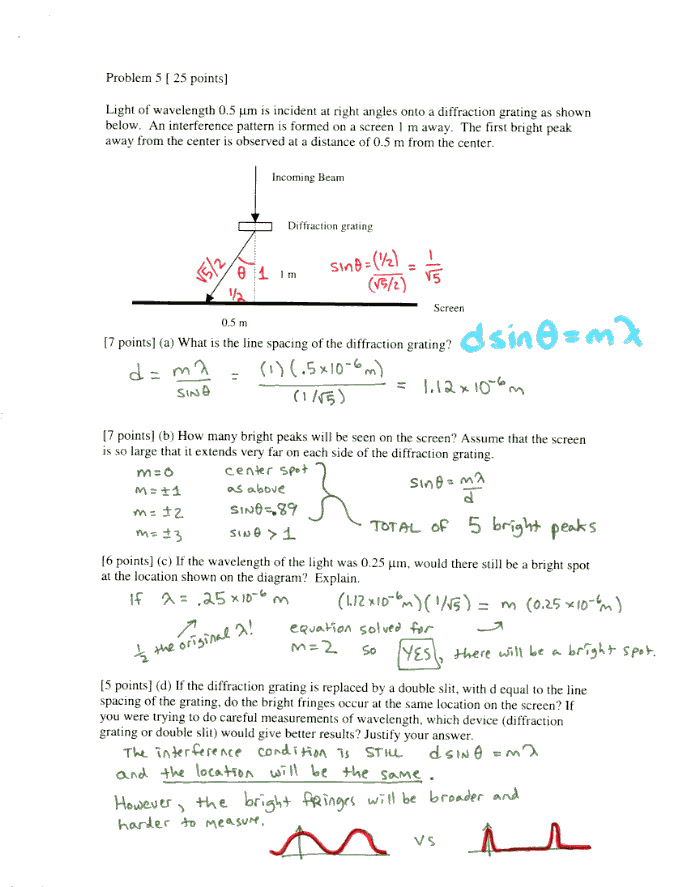 Problem 5 [ 25 points]
Light of wavelength 0.5 μm is incident at right angles onto a diffraction grating as shown
below. An interference pattern is formed on a screen 1 m away. The first bright peak
away from the center is observed at a distance of 0.5 m from the center.
Incoming Beam
Diffraction grating
√5/2 θ 1 1 m sinθ = (1/2)/(√5/2) = 1/√5
1/2
Screen
0.5 m
[7 points] (a) What is the line spacing of the diffraction grating? d sinθ = mλ
d = mλ/SINθ = (1)(.5×10⁻⁶m)/(1/√5) = 1.12 × 10⁻⁶ m
[7 points] (b) How many bright peaks will be seen on the screen? Assume that the screen
is so large that it extends very far on each side of the diffraction grating.
m=0 center spot
m=±1 as above
m=±2 SINθ=.89
m=±3 SINθ > 1
SINθ = mλ/d
TOTAL of 5 bright peaks
[6 points] (c) If the wavelength of the light was 0.25 μm, would there still be a bright spot
at the location shown on the diagram? Explain.
If λ = .25 ×10⁻⁶ m (1.12 ×10⁻⁶m)(1/√5) = m (0.25 ×10⁻⁶m)
1/2 the original λ!
equation solved for
m=2 so YES, there will be a bright spot.
[5 points] (d) If the diffraction grating is replaced by a double slit, with d equal to the line
spacing of the grating, do the bright fringes occur at the same location on the screen? If
you were trying to do careful measurements of wavelength, which device (diffraction
grating or double slit) would give better results? Justify your answer.
The interference condition is STILL d SINθ = mλ
and the location will be the same.
However, the bright fRinges will be broader and
harder to measure.
VS